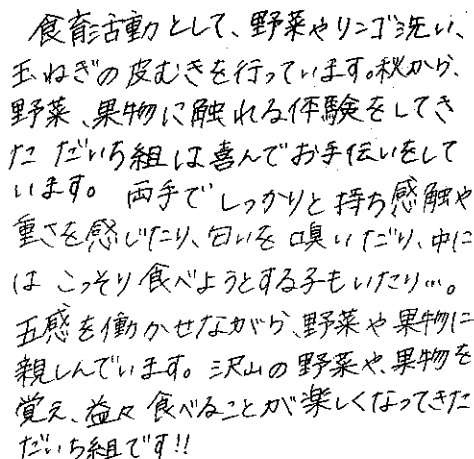 食育活動として、野菜やリンゴ洗い、
玉ねぎの皮むきを行っています。秋から、
野菜、果物に触れる体験をしてき
た だいち組は喜んでお手伝いをして
います。 両手でしっかりと持ち感触や
重さを感じたり、匂いを嗅いだり、中に
は こっそり食べようとする子もいたり…。
五感を働かせながら、野菜や果物に
親しんでいます。沢山の野菜や、果物を
覚え、益々食べることが楽しくなってきた
だいち組です!!